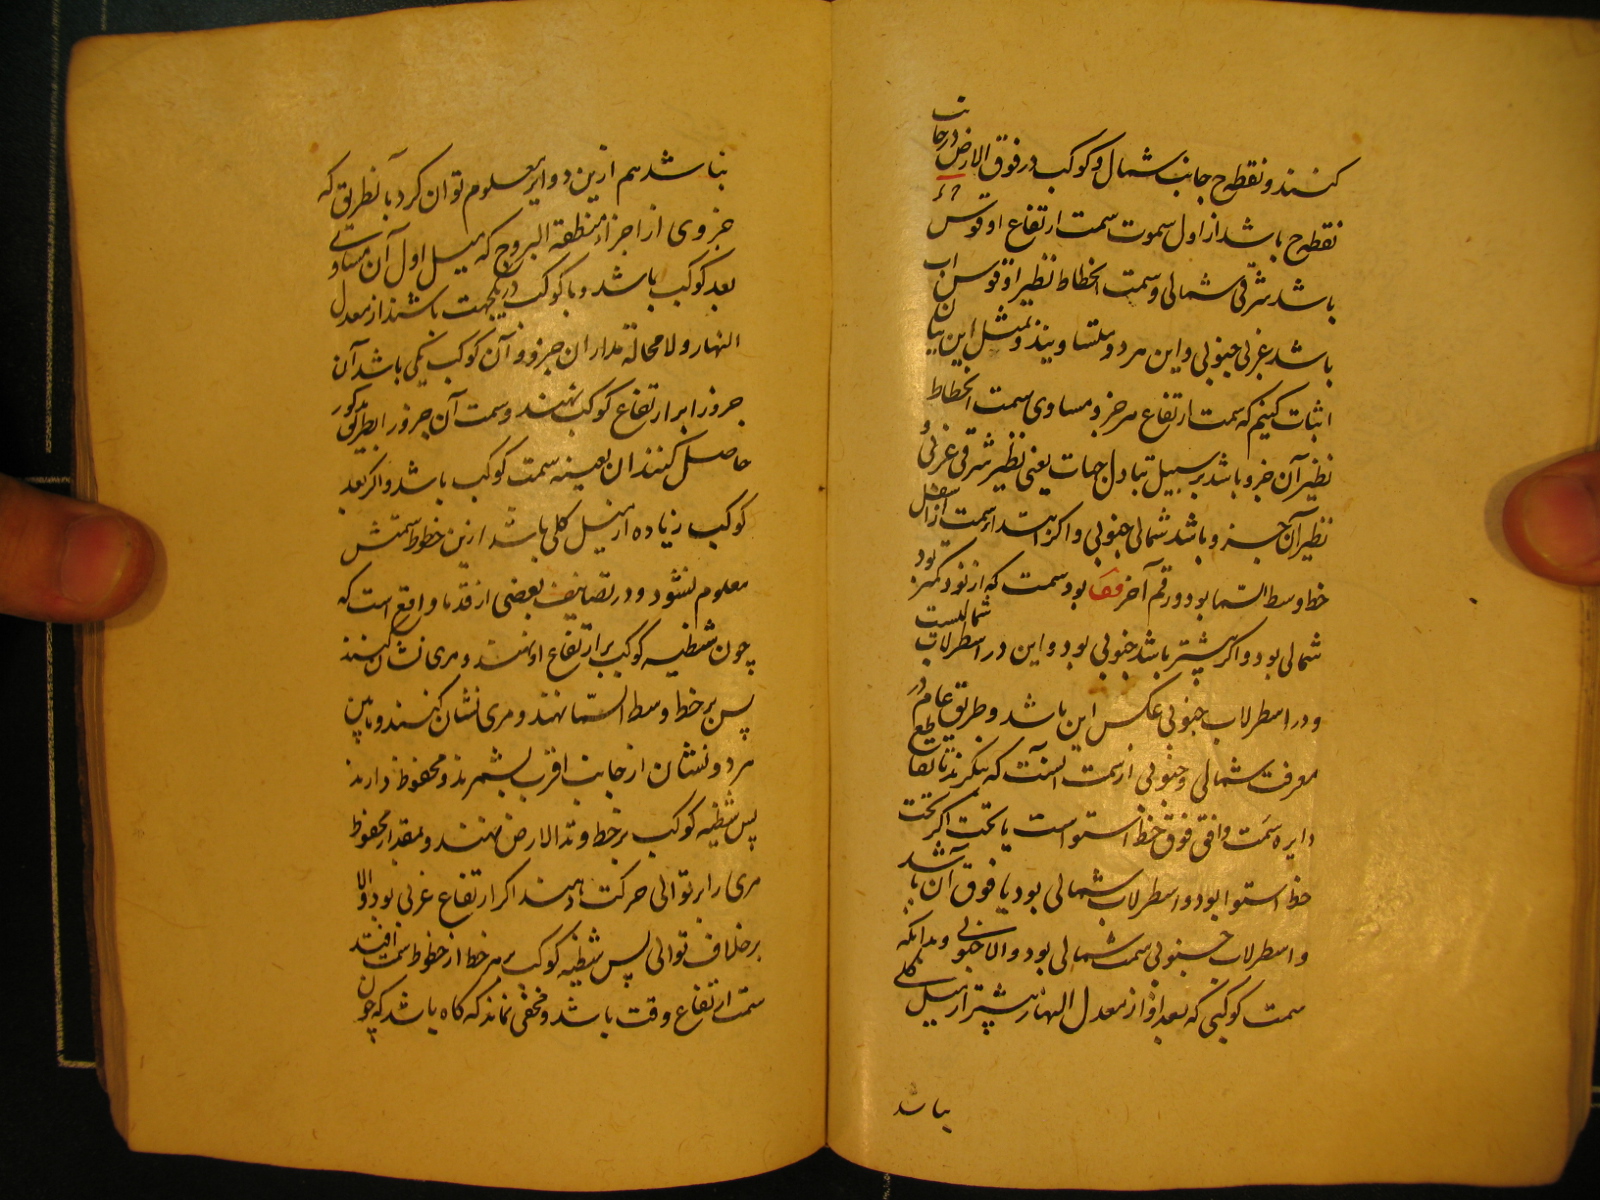 کنند و نقطه ح جانب شمال و کوکب در فوق الارض در جانب
نقطه ح باشد از اول سموت سمت ارتفاع او قوس
باشد شرقی شمالی و سمت انحطاط نظیر او قوس اب
باشد غربی جنوبی و این هر دو متساویند و بمثل این بیان
اثبات کنیم که سمت ارتفاع هر جزو مساوی سمت انحطاط
نظیر آن جزو باشد بر سبیل تبادل جهات یعنی نظیر شرقی غربی و
نظیر آن جزو باشد شمالی جنوبی و اگر ابتدا سمت از اسفل
خط وسط السما بود و رقم آخر بود سمت که از نود کمتر بود
شمالی بود و اگر بیشتر باشد جنوبی بود و این در اسطرلاب شمالیست
و در اسطرلاب جنوبی عکس این باشد و طریق عام در
معرفت شمالی و جنوبی از سمت آنست که بنگرند تا تقاطع
دایره سمت و افق فوق خط استواست یا تحت اگر تحت
خط استوا بود و اسطرلاب شمالی بود یا فوق آن باشد
و اسطرلاب جنوبی سمت شمالی بود و الا جنوبی و بدانکه
سمت کوکبی که بعد او از معدل النهار بیشتر از میل کلی
نباشد
نباشد هم ازین دوایر معلوم توان کرد بآنطریق که
جزوی از اجزاء منطقة البروج که میل اول آن مساوی
بعد کوکب باشد و با کوکب در یکجهت باشند از معدل
النهار و لا محاله مداران جزو و آن کوکب یکی باشد آن
جزو را بر ارتفاع کوکب نهند و سمت آن جزو را بطریق مذکور
حاصل کنند ان بعینه سمت کوکب باشد و اگر بعد
کوکب زیاده از میل کلی باشد ازین خطوط سمتش
معلوم نشود و در تصانیف بعضی از قدما واقع است که
چون شظیه کوکب بر ارتفاع او نهند و مری نشان کنند
پس بر خط وسط السما نهند و مری نشان کنند و مابین
هر دو نشان از جانب اقرب بشمرند و محفوظ دارند
پس شظیه کوکب بر خط وتد الارض نهند و بمقدار محفوظ
مری را بر توالی حرکت دهند اگر ارتفاع غربی بود و الا
بر خلاف توالی پس شظیه کوکب بر هر خط از خطوط سمت افتد
سمت ارتفاع وقت باشد و مخفی نماند که گاه باشد که چون